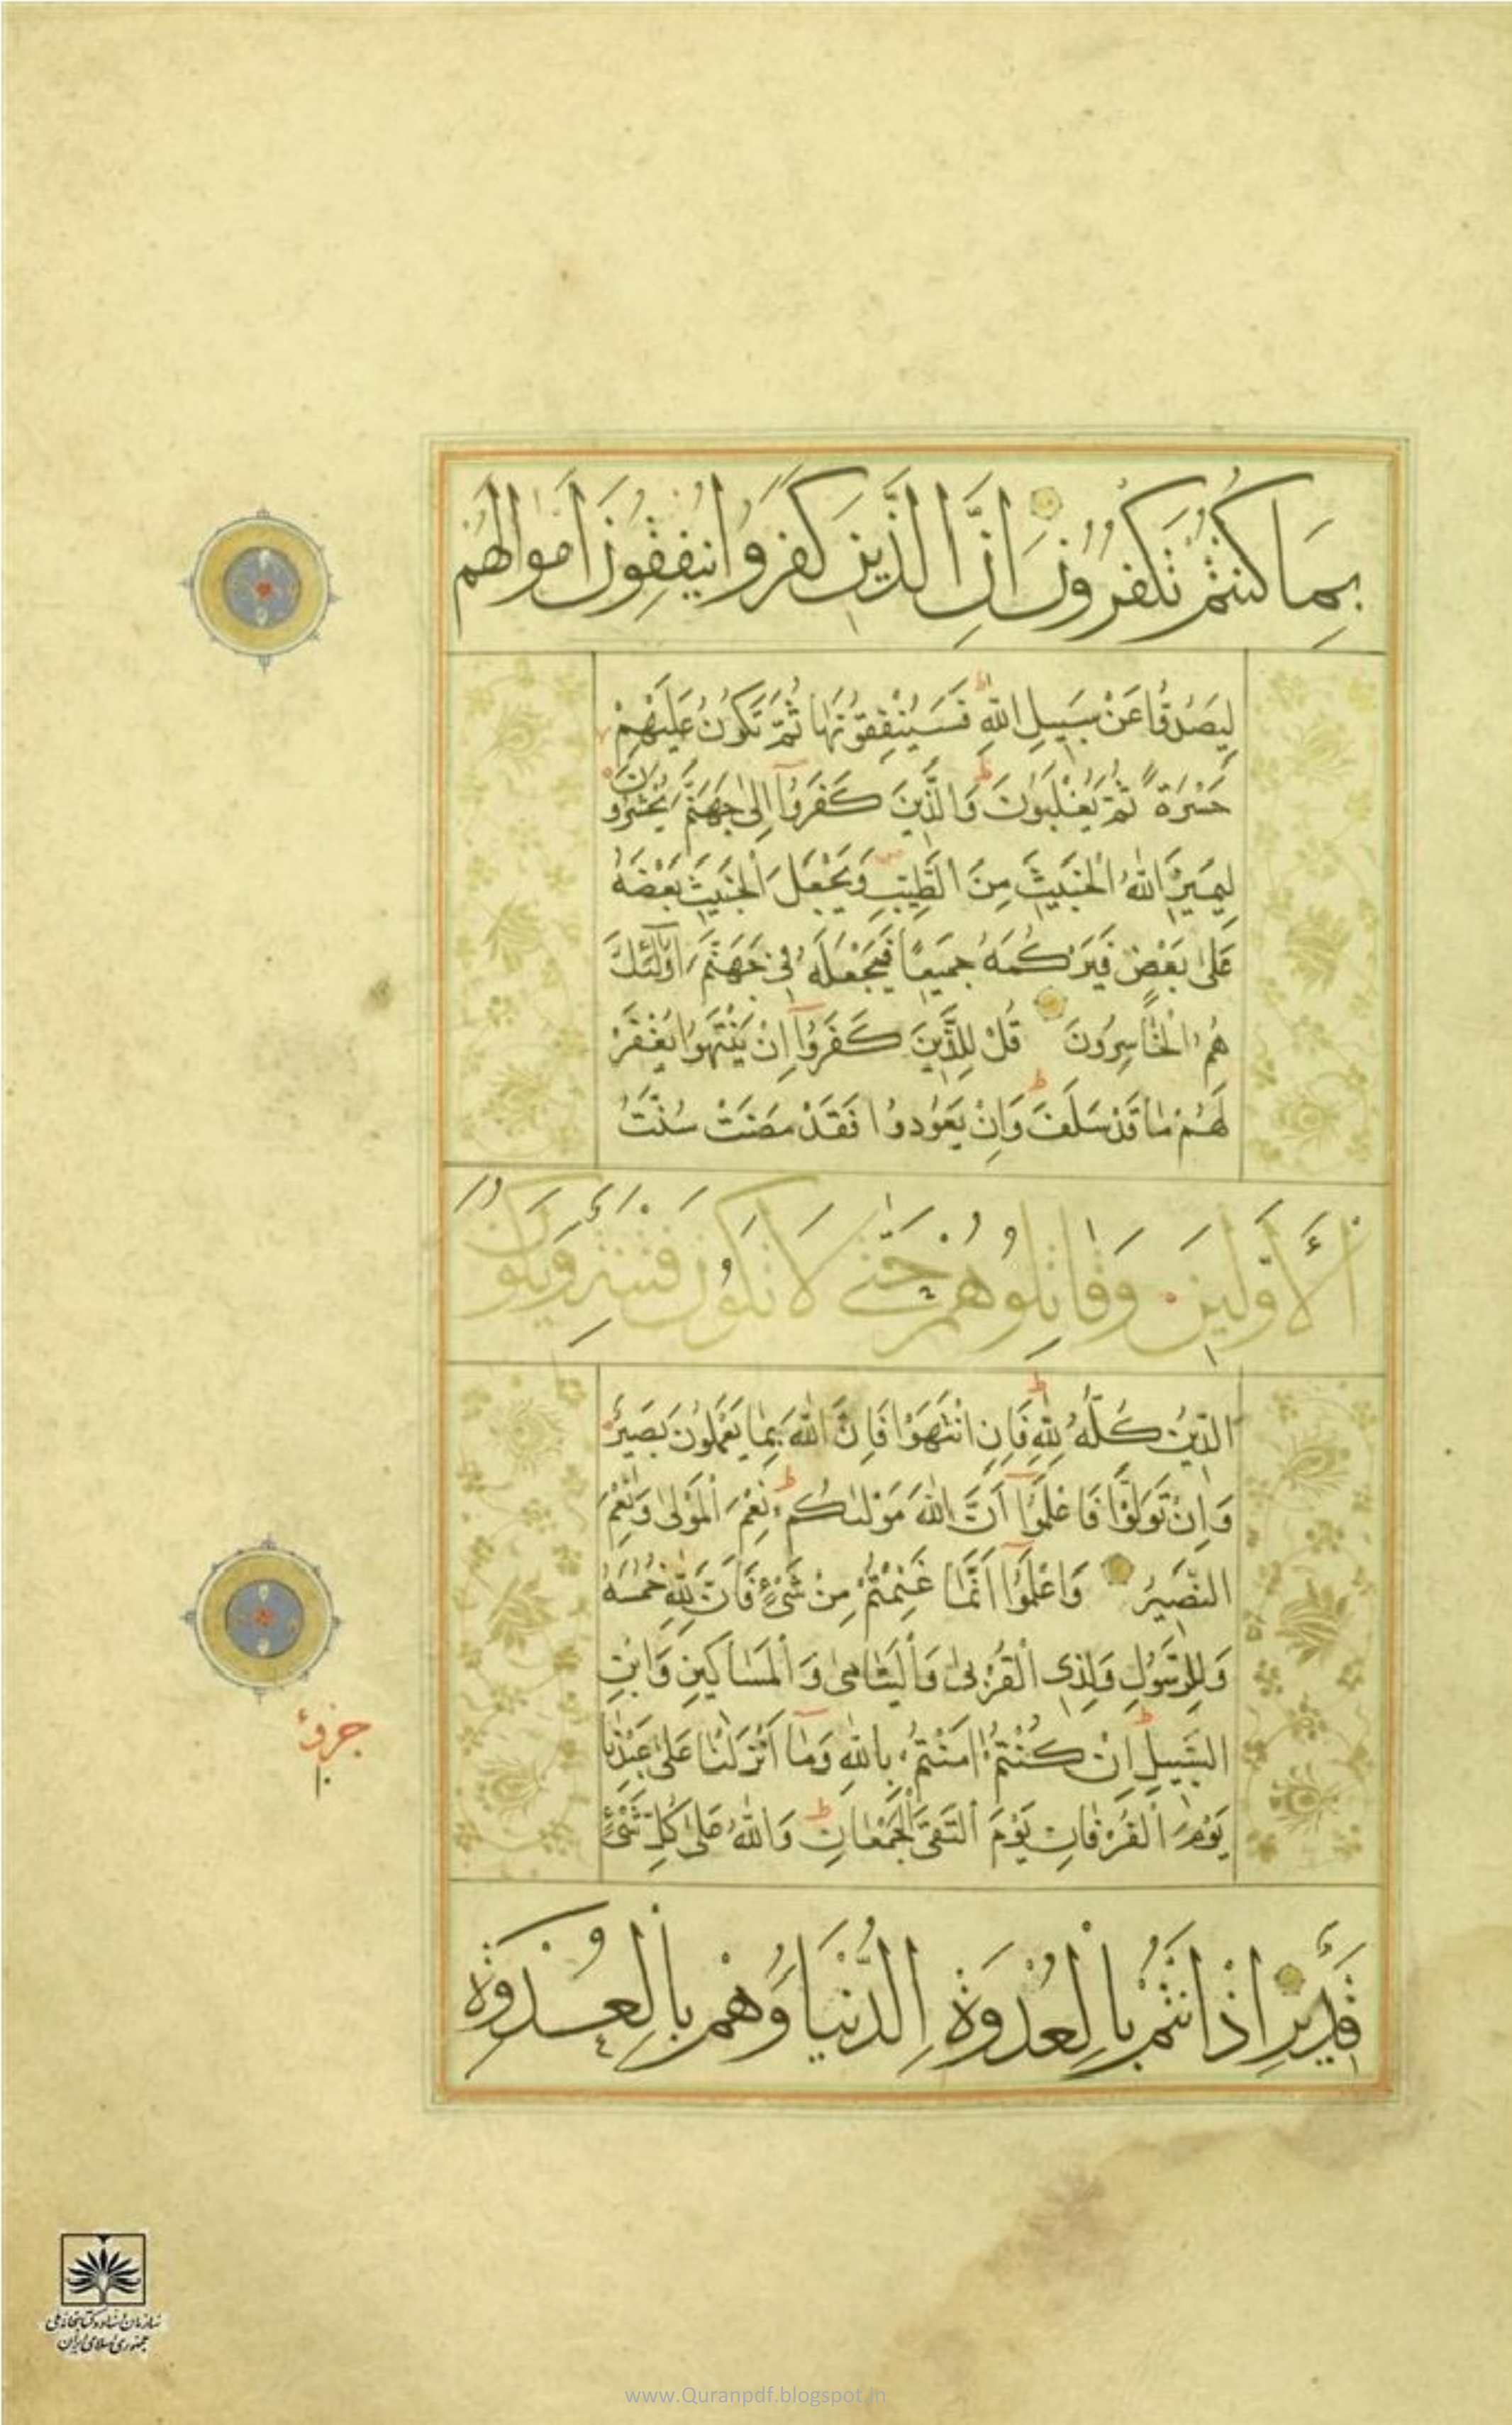 بِمَا كُنتُمْ تَكْفُرُونَ اِنَّ الَّذِينَ كَفَرُوا يُنفِقُونَ اَمْوَالَهُمْ
لِيَصُدُّوا عَنْ سَبِيلِ اللّٰهِ فَسَيُنْفِقُونَهَا ثُمَّ تَكُونُ عَلَيْهِمْ
حَسْرَةً ثُمَّ يُغْلَبُونَ وَالَّذِينَ كَفَرُوٓا اِلٰى جَهَنَّمَ يُحْشَرُونَ
لِيَمِيزَ اللّٰهُ الْخَبِيثَ مِنَ الطَّيِّبِ وَيَجْعَلَ الْخَبِيثَ بَعْضَهُ
عَلٰى بَعْضٍ فَيَرْكُمَهُ جَمِيعًا فَيَجْعَلَهُ فِي جَهَنَّمَ اُولٰٓئِكَ
هُمُ الْخَاسِرُونَ قُلْ لِلَّذِينَ كَفَرُوٓا اِنْ يَنْتَهُوا يُغْفَرْ
لَهُمْ مَا قَدْ سَلَفَ وَاِنْ يَعُودُوا فَقَدْ مَضَتْ سُنَّتُ
الْاَوَّلِينَ وَقَاتِلُوهُمْ حَتّٰى لَا تَكُونَ فِتْنَةٌ وَيَكُونَ
الدِّينُ كُلُّهُ لِلّٰهِ فَاِنِ انْتَهَوْا فَاِنَّ اللّٰهَ بِمَا يَعْمَلُونَ بَصِيرٌ
وَاِنْ تَوَلَّوْا فَاعْلَمُوٓا اَنَّ اللّٰهَ مَوْلٰىكُمْ نِعْمَ الْمَوْلٰى وَنِعْمَ
النَّصِيرُ وَاعْلَمُوٓا اَنَّمَا غَنِمْتُمْ مِنْ شَيْءٍ فَاَنَّ لِلّٰهِ خُمُسَهُ
وَلِلرَّسُولِ وَلِذِي الْقُرْبٰى وَالْيَتَامٰى وَالْمَسَاكِينِ وَابْنِ
السَّبِيلِ اِنْ كُنْتُمْ اٰمَنْتُمْ بِاللّٰهِ وَمَآ اَنْزَلْنَا عَلٰى عَبْدِنَا
يَوْمَ الْفُرْقَانِ يَوْمَ الْتَقَى الْجَمْعَانِ وَاللّٰهُ عَلٰى كُلِّ شَيْءٍ
قَدِيرٌ اِذْ اَنْتُمْ بِالْعُدْوَةِ الدُّنْيَا وَهُمْ بِالْعُدْوَةِ
جزوء
۱۰
سازمان اسناد و کتابخانه ملی
جمهوری اسلامی ایران
www.Quranpdf.blogspot.in